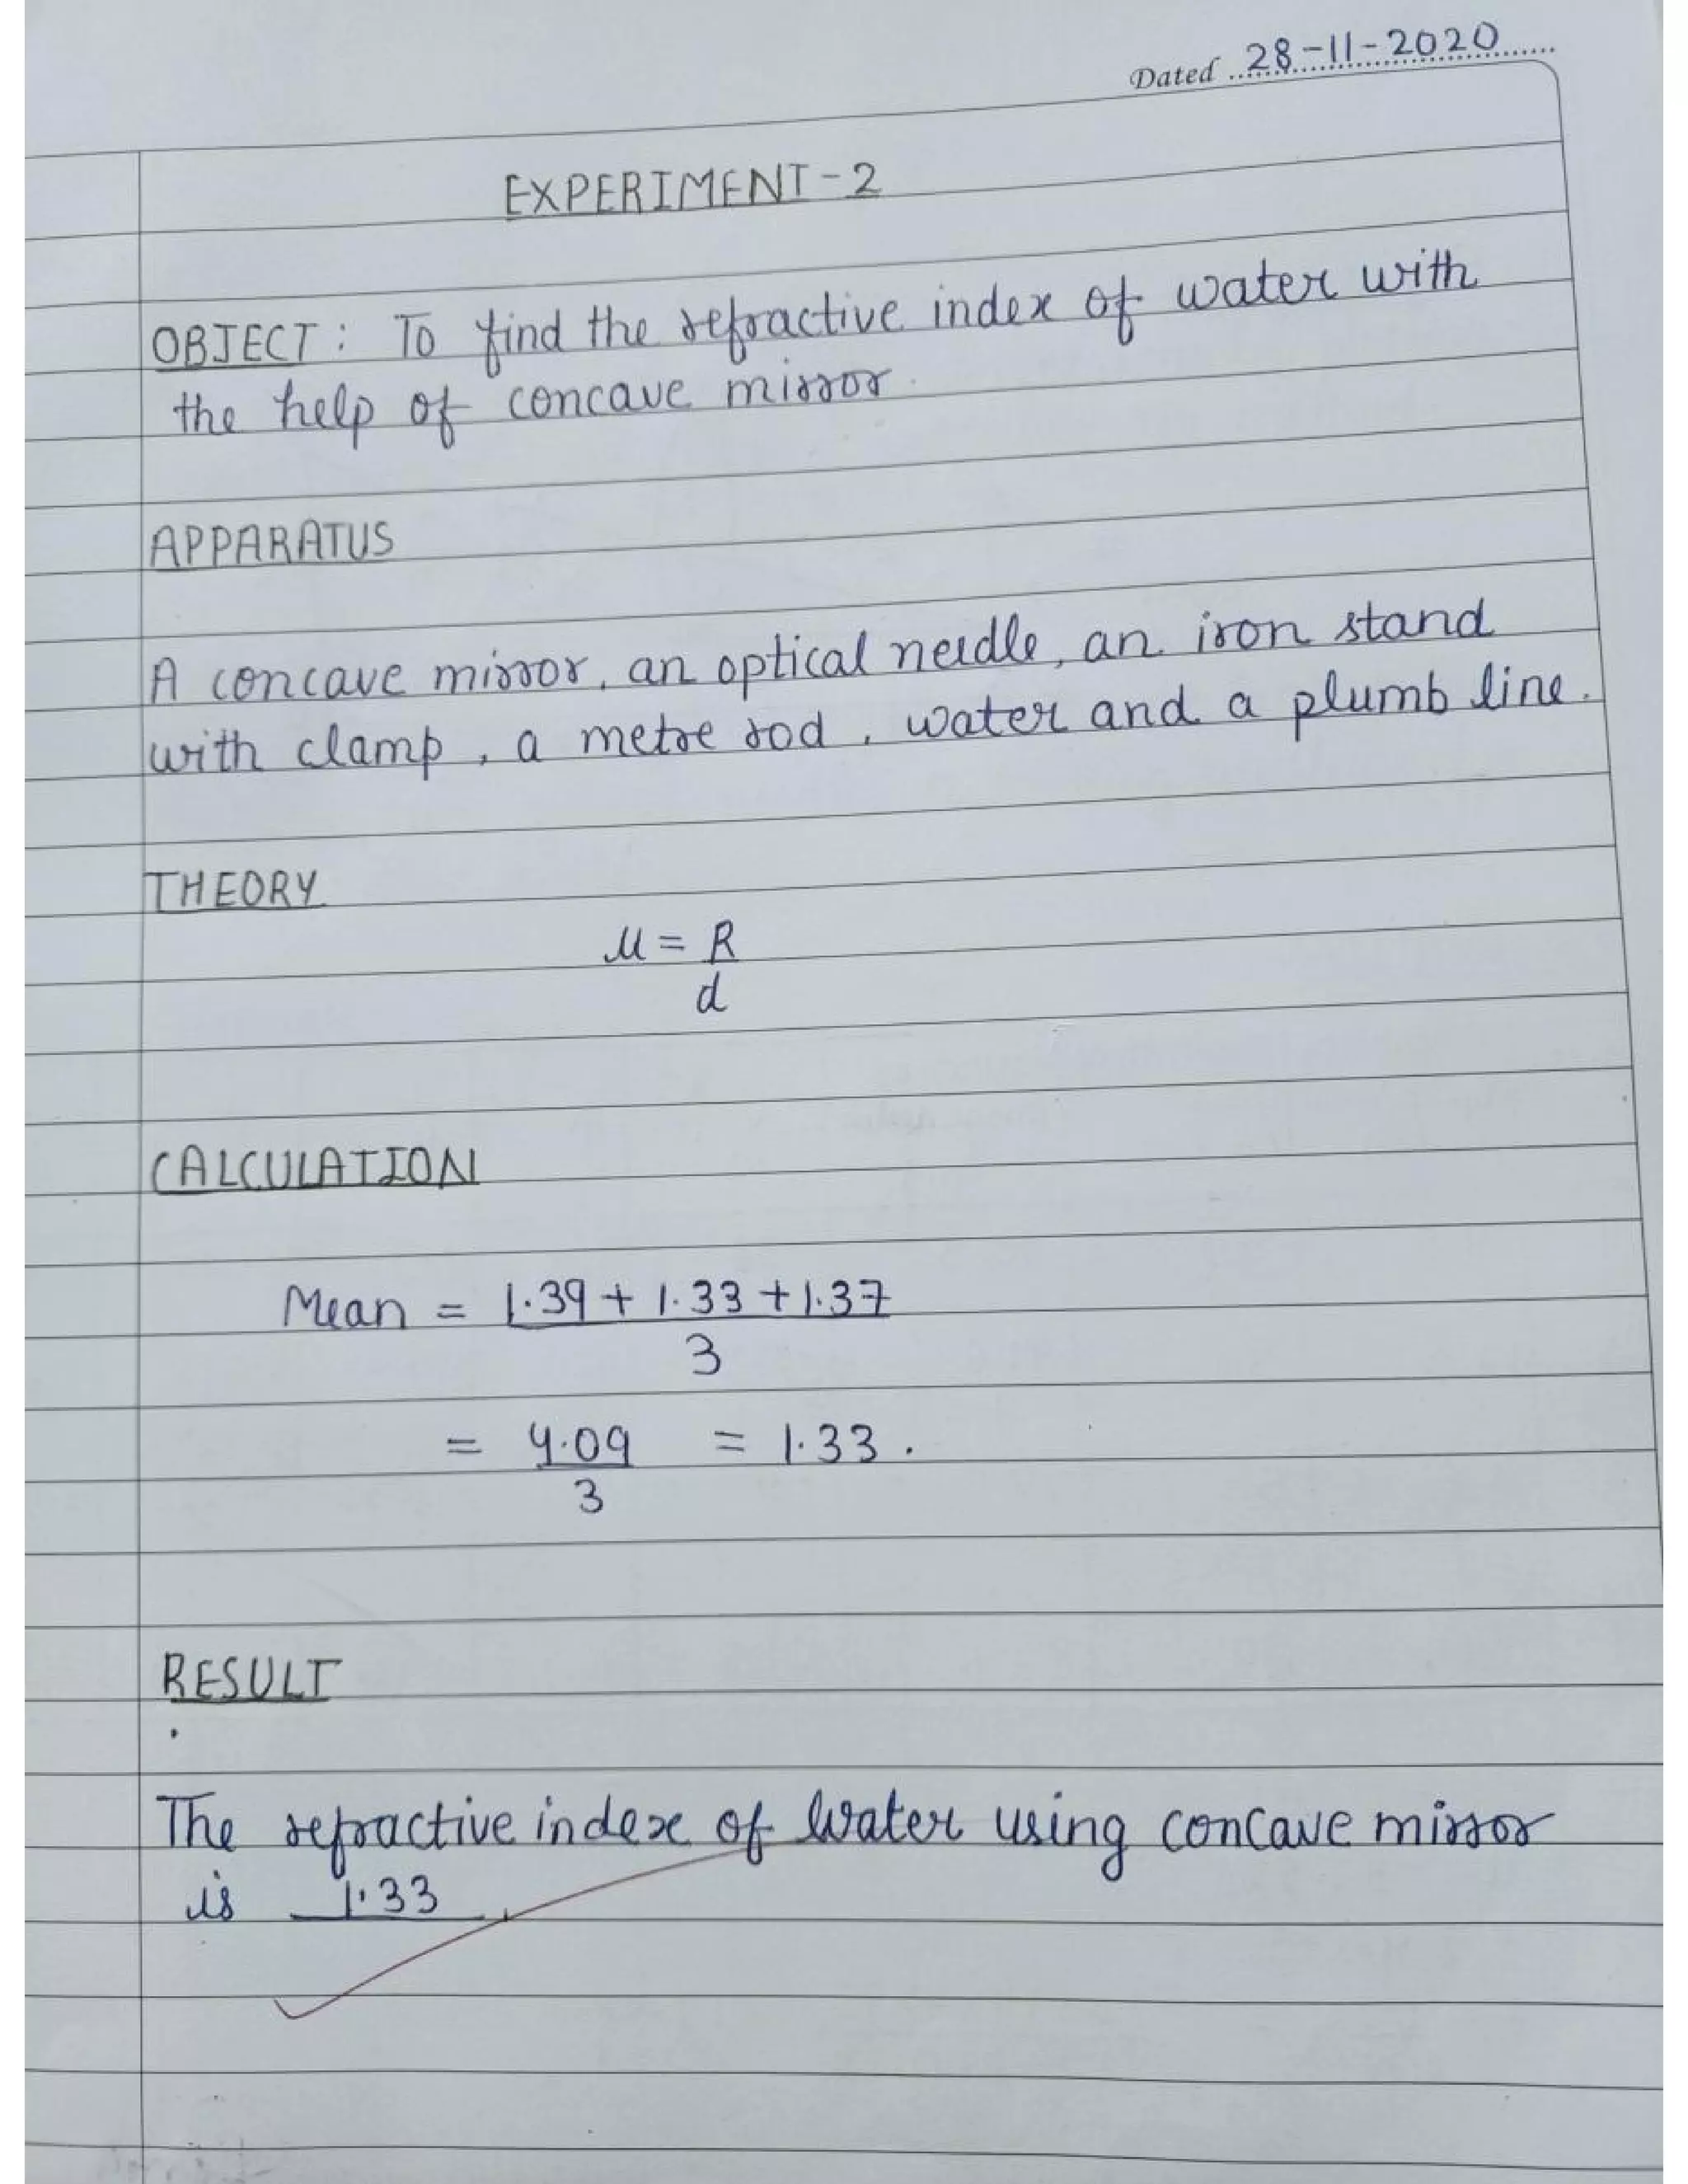 Dated 28-11-2020
EXPERIMENT-2
OBJECT: To find the refractive index of water with
the help of concave mirror.
APPARATUS
A concave mirror, an optical needle, an iron stand
with clamp, a metre rod, water and a plumb line.
THEORY
μ = R
d
CALCULATION
Mean = 1.39 + 1.33 + 1.37
3
= 4.09 = 1.33.
3
RESULT
The refractive index of water using concave mirror
is 1.33.